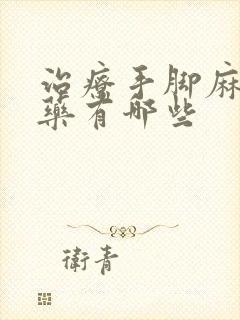 治療手脚麻
藥有哪些
衛青